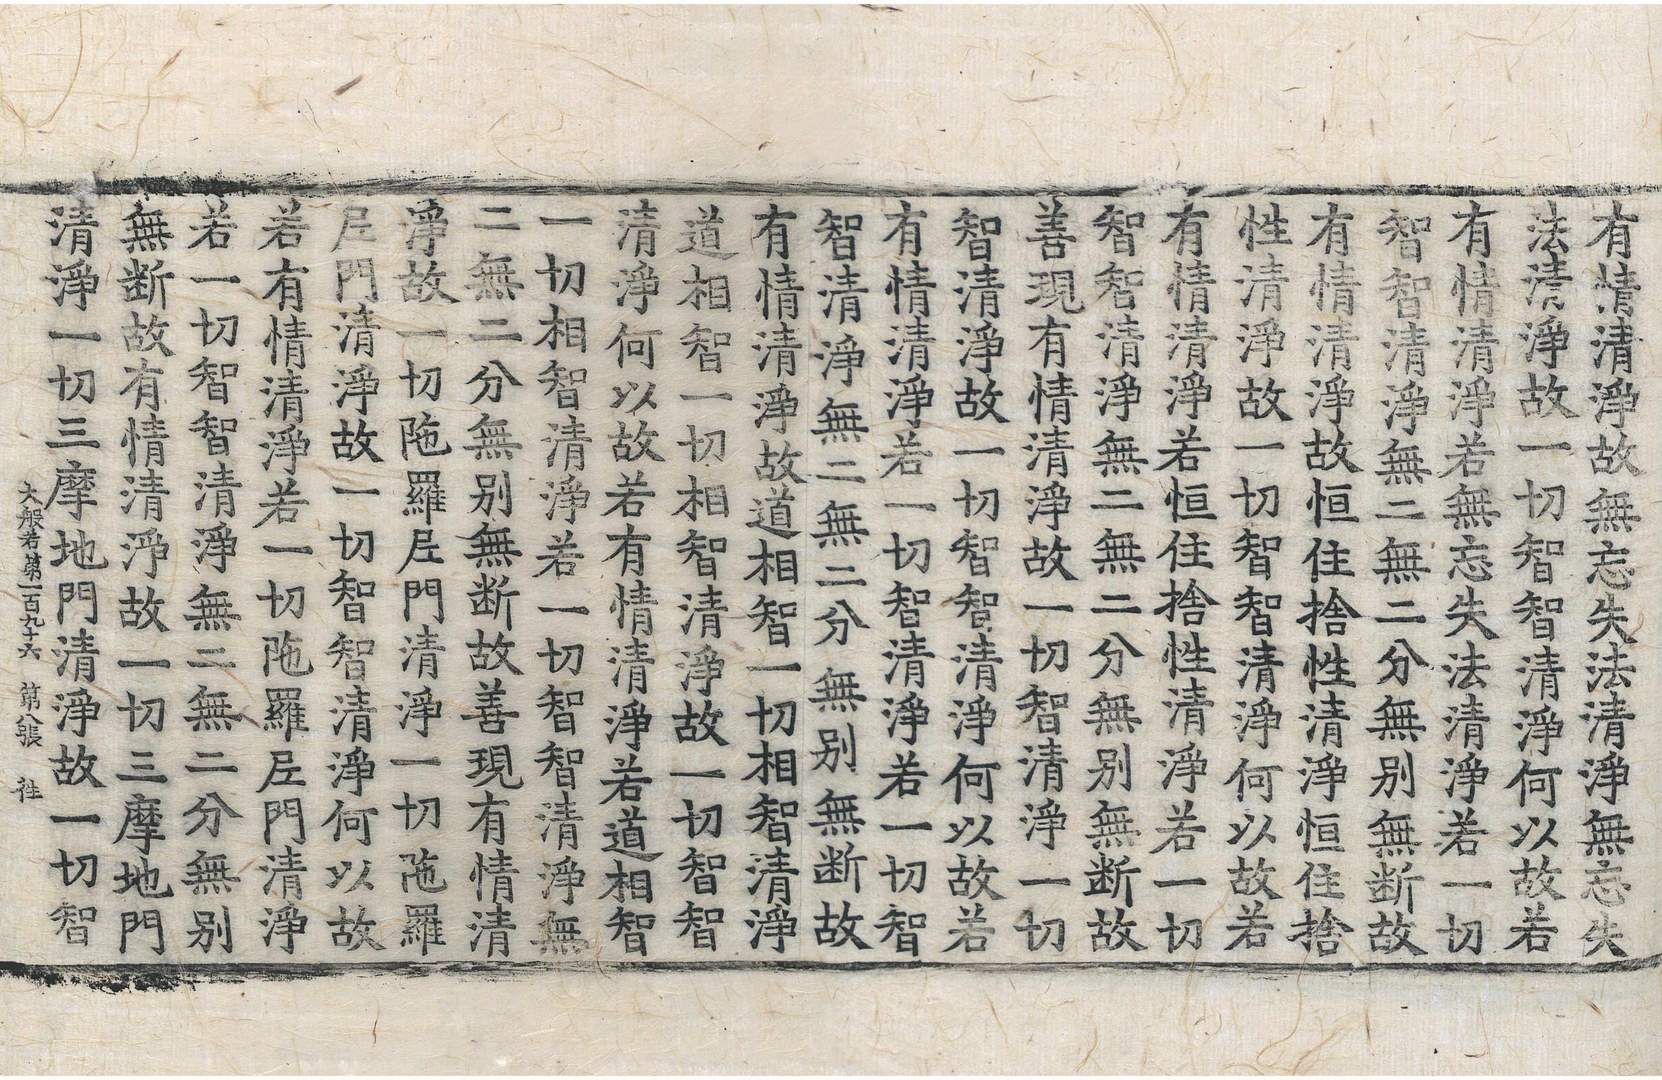 有情清淨故無忘失法清淨無忘失
法清淨故一切智智清淨何以故若
有情清淨若無忘失法清淨若一切
智智清淨無二無二分無別無斷故
有情清淨故恒住捨性清淨恒住捨
性清淨故一切智智清淨何以故若
有情清淨若恒住捨性清淨若一切
智智清淨無二無二分無別無斷故
善現有情清淨故一切智清淨一切
智清淨故一切智智清淨何以故若
有情清淨若一切智清淨若一切智
智清淨無二無二分無別無斷故
有情清淨故道相智一切相智清淨
道相智一切相智清淨故一切智智
清淨何以故若有情清淨若道相智
一切相智清淨若一切智智清淨無
二無二分無別無斷故善現有情清
淨故一切陁羅尼門清淨一切陁羅
尼門清淨故一切智智清淨何以故
若有情清淨若一切陁羅尼門清淨
若一切智智清淨無二無二分無別
無斷故有情清淨故一切三摩地門
清淨一切三摩地門清淨故一切智
大般若第一百九十六 第八張 往